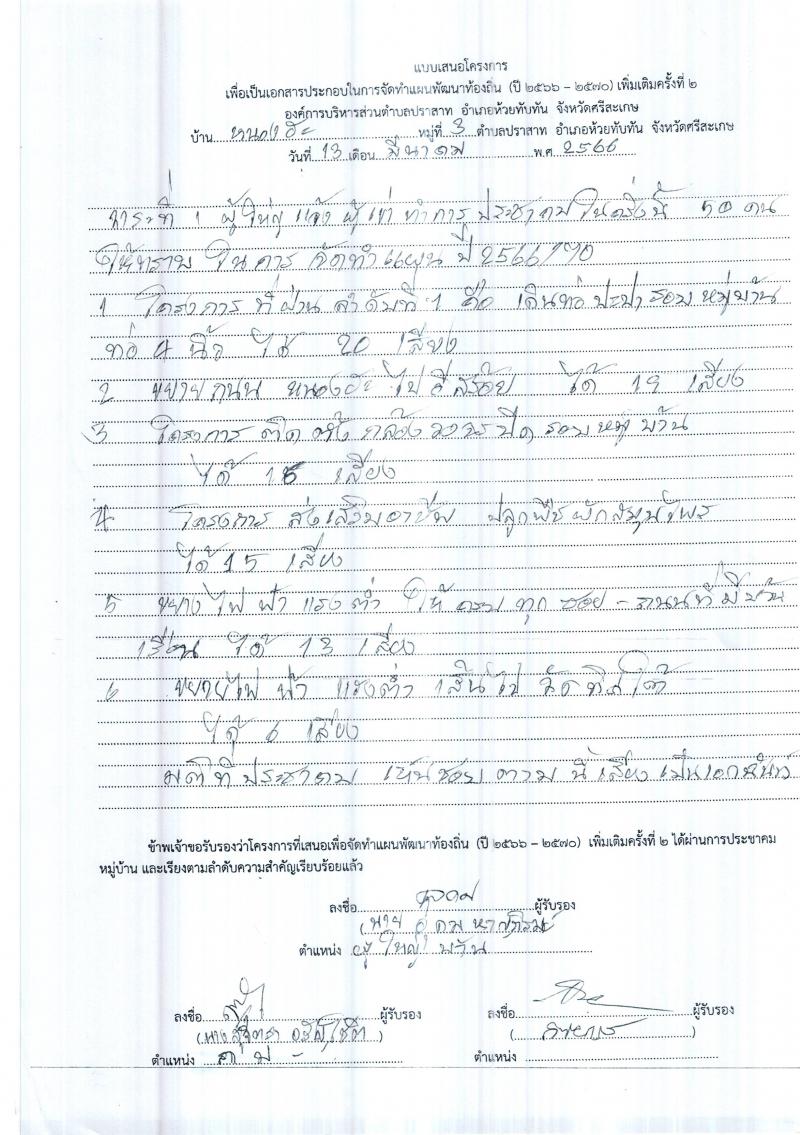 แบบเสนอโครงการ
เพื่อเป็นเอกสารประกอบในการจัดทำแผนพัฒนาท้องถิ่น (ปี ๒๕๖๖ – ๒๕๗๐) เพิ่มเติมครั้งที่ ๒
องค์การบริหารส่วนตำบลปราสาท อำเภอห้วยทับทัน จังหวัดศรีสะเกษ
บ้าน หนองฮะ หมู่ที่ 3 ตำบลปราสาท อำเภอห้วยทับทัน จังหวัดศรีสะเกษ
วันที่ 13 เดือน มีนาคม พ.ศ 2566
วาระที่ 1 ผู้ใหญ่ แจ้ง ผู้เข้า ทำการ ประชาคม ในครั้งนี้ 50 คน
ให้ทราบ ในการ จัดทำแผน ปี 2566/70
1 โครงการ ที่ผ่าน ลำดับที่ 1 คือ เดินท่อ ปะปา รอบ หมู่บ้าน
ท่อ 4 นิ้ว ได้ 20 เสียง
2 ขยายถนน หนองฮะ ไป ได้ 19 เสียง
3 โครงการ ติดตั้ง กล้อง วงจรปิด รอบหมู่บ้าน
ได้ 16 เสียง
4 โครงการ ส่งเสริมอาชีพ ปลูกพืชผักสมุนไพร
ได้ 15 เสียง
5 ขยายไฟฟ้า แรงต่ำ ให้ครบ ทุกซอย - ถนนที่มีบ้าน
เรือน ได้ 13 เสียง
6 ขยายไฟฟ้า แรงต่ำ เส้นไป วัดทิศใต้
ได้ 6 เสียง
มติที่ประชาคม เห็นชอบ ตาม นี้ เสียงเป็นเอกฉันท์
ข้าพเจ้าขอรับรองว่าโครงการที่เสนอเพื่อจัดทำแผนพัฒนาท้องถิ่น (ปี ๒๕๖๖ – ๒๕๗๐) เพิ่มเติมครั้งที่ ๒ ได้ผ่านการประชาคม
หมู่บ้าน และเรียงตามลำดับความสำคัญเรียบร้อยแล้ว
ลงชื่อ อุดม ผู้รับรอง
(นาย อุดม)
ตำแหน่ง ผู้ใหญ่บ้าน
ลงชื่อ ผู้รับรอง ลงชื่อ ผู้รับรอง
(นาง)
ตำแหน่ง ตำแหน่ง